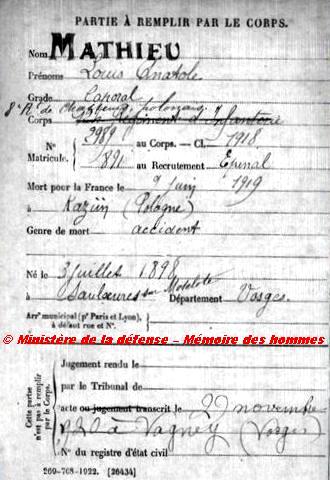 PARTIE À REMPLIR PAR LE CORPS.
Nom MATHIEU
Prénoms Louis Anatole
Grade Caporal
8e R. de chasseurs polonais
Corps Régiment d'Infanterie
N° 2989 au Corps. — Cl. 1918
Matricule. 891 au Recrutement Épinal
Mort pour la France le 9 juin 1919
à Kazün (Pologne)
Genre de mort accident
Né le 3 juillet 1898
à Saulxures sur Moselotte Département Vosges.
Arrt municipal (pr Paris et Lyon),
à défaut rue et N°.
© Ministère de la défense - Mémoire des hommes
Cette partie
n'est pas à remplir
par le Corps.
Jugement rendu le
par le Tribunal de
acte ou jugement transcrit le 29 novembre
1920 à Vagney (Vosges)
N° du registre d'état civil
269-708-1922. [26434]